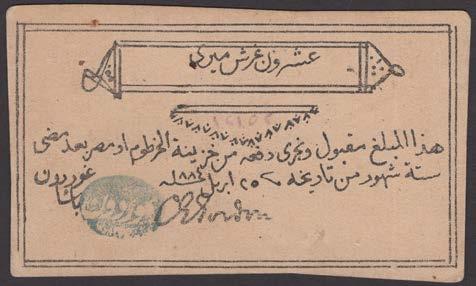 عشرون غرش ميرى
هذا المبلغ مقبول ونجرى دفعه من خزينة الخرطوم او مصر بعد مضى
ستة شهور من تاريخه ٢٥ ابريل ١٨٨٤ سنه غوردون
باشا